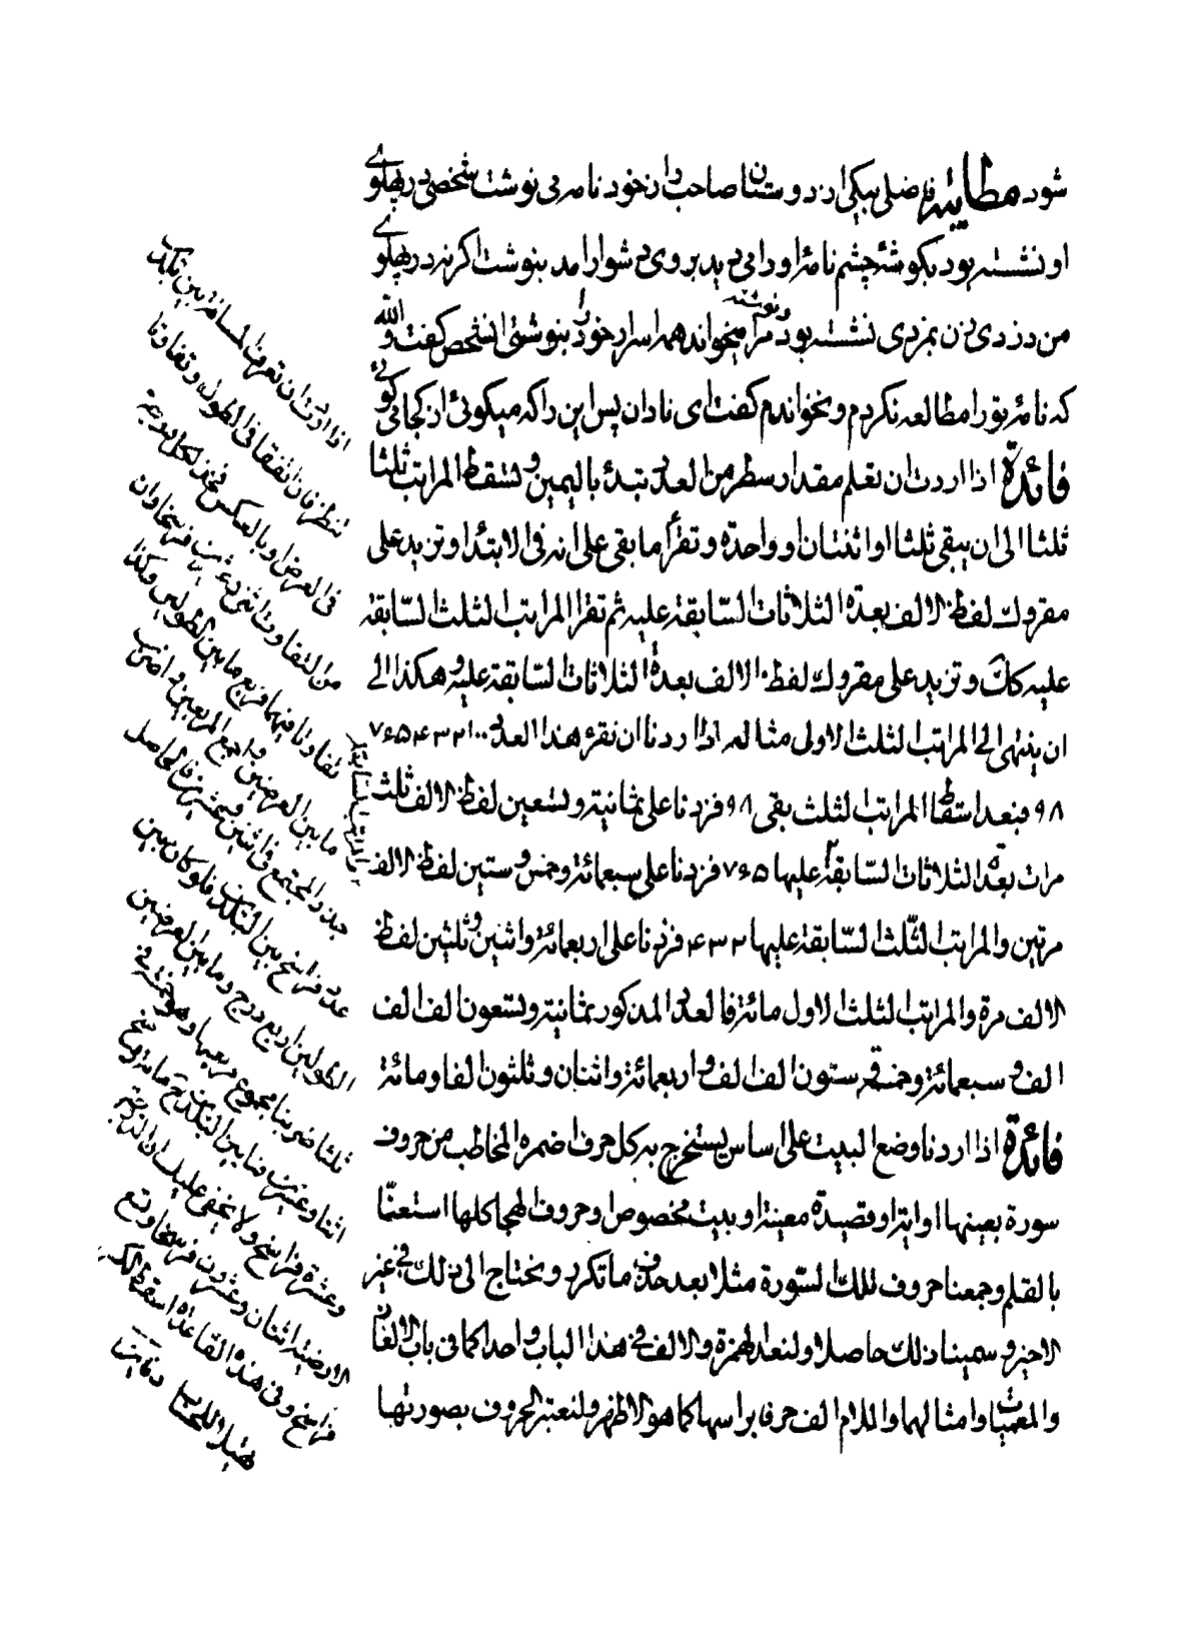 شود مطایبه فاضلی بیکی از دوستان صاحب راز خود نامه می نوشت شخصی در پهلوی
او نشسته بود بگوشهٔ چشم نامهٔ او را می دید بر وی دشوار آمد بنوشت اگر نه در پهلوی
من دزدی زن بمزدی نشسته بودی و نوشته مرا میخواندی همه اسرار خود را بنوشتمی آنشخص گفت والله
که نامهٔ تو را مطالعه نکردم و نخواندم گفت ای نادان پس این را که میگوئی از کجا می گوئی
فائدة اذا اردت ان تعلم مقدار سطر من العدد تبتدئ بالیمین و تسقط المراتب ثلثا
ثلثا الی ان یبقی ثلثا او اثنتان او واحدة و تقرأ ما بقی علی انه فی الابتداء و تزید علی
مقروك لفظ الالف بعدة الثلاثات السّابقة علیه ثم تقرأ المراتب الثلث السّابقة
علیه کك و تزید علی مقروك لفظ الالف بعدة الثلاثات السّابقة علیه و هکذا الی
ان ینتهی الی المراتب الثلث الاولی مثاله اذا اردنا ان نقرء هذا العدد ۷۶۵۴۳۲۱۰۰
۹۸ فبعد اسقاط المراتب الثلث بقی ۹۸ فزدنا علی ثمانیة و تسعین لفظ الالف ثلث
مرات بعدة الثلاثات السّابقة علیها ۷۶۵ فزدنا علی سبعمائة و خمس و ستین لفظ الالف
مرتین و المراتب الثّلث السّابقة علیها ۴۳۲ فزدنا علی اربعمائة و اثنین و ثلثین لفظ
الالف مرة و المراتب الثلث الاول مائة فالعدد المذکور ثمانیة و تسعون الف الف
الف و سبعمائة و خمسة و ستون الف الف و اربعمائة و اثنان و ثلثون الفا و مائة
فائدة اذا اردنا وضع البیت علی اساس یستخرج به کل حرف اضمره المخاطب من حروف
سورة بعینها او ایة او قصیدة معینة او بیت مخصوص او حروف الهجا کلها استعنّا
بالقلم و جمعنا حروف تلك السّورة مثلا بعد حذف ما تکرر و نحتاج الی ذلك فی غیر
الاخیر و سمینا ذلك حاصلا و لنعد الهمزة و الالف فی هذا الباب واحدا کما فی باب الالغاز
و المعمیات و امثالهما و اللام الف حرفا براسها کما هو الاظهر و لنعتبر الحروف بصورتها
اذا اردت ان تعرف المسافة بین بلدین
تنظر فان اتفقا فی الطول و تفاوتا
فی العرض او بالعکس فخذ لکل درجة
من التفاوت اثنین و عشرین فرسخا و ان
تفاوتا فیهما فربع ما بین الطولین و کذا
ما بین العرضین و اجمع المربعین و اضرب
جذر المجتمع فی اثنین و عشرین فالحاصل
عدد فراسخ بین البلدین فلو کان بین
الطولین اربع درج و ما بین العرضین
ثلثا ضربنا مجموع مربعیهما و هو خمسة فی
اثنا و عشرین فما بین البلدین ح مائة
و عشرة فراسخ و لا یخفی علیك ان الدرجة
الارضیة اثنان و عشرون فرسخا و تسع
فرسخ و فی هذه القاعدة اسقط الکسر